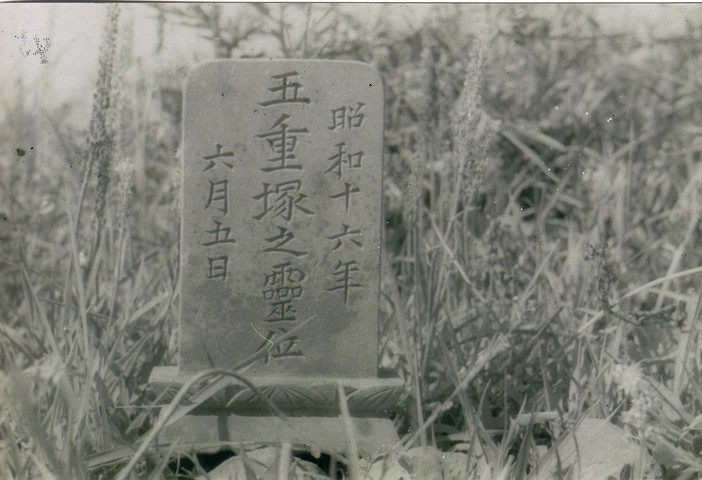 昭和十六年
五重塚之靈位
六月五日